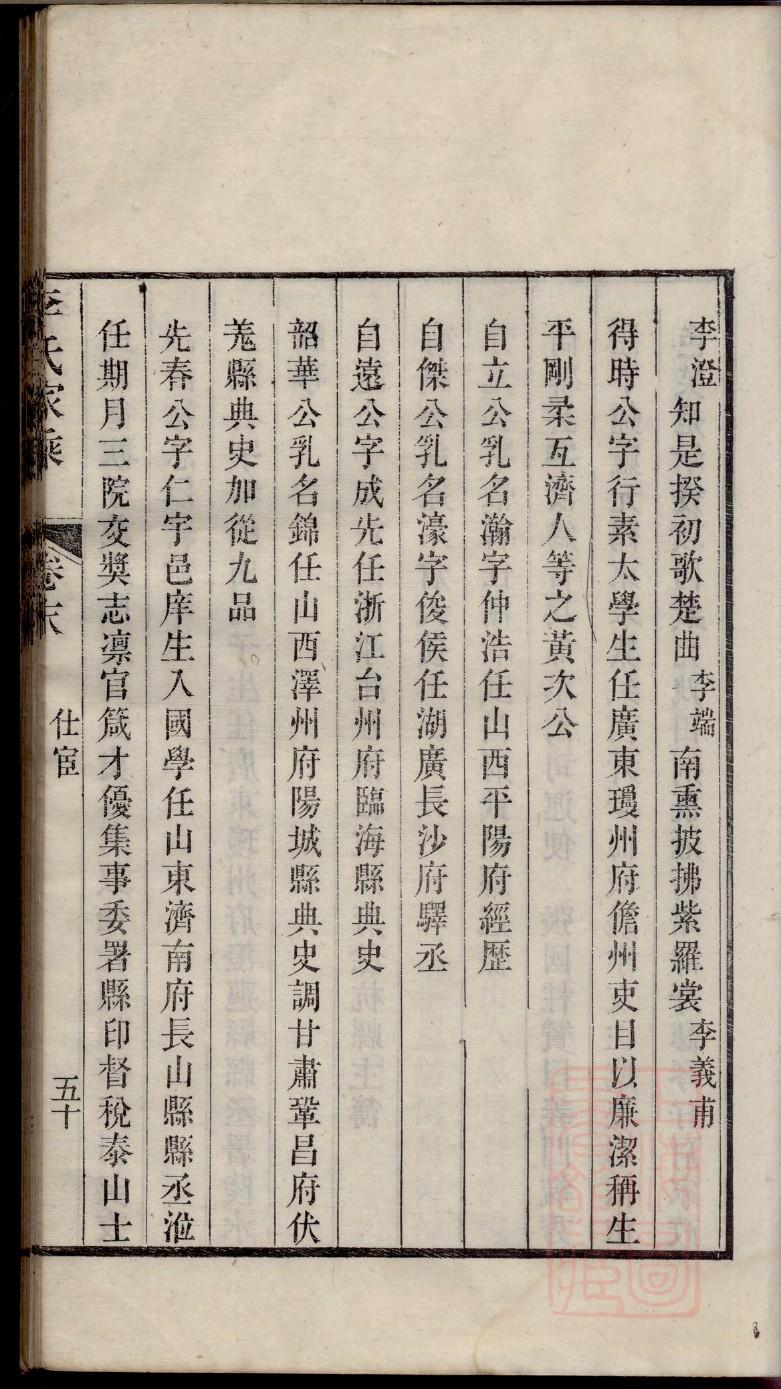 李澄 知是揆初歌楚曲 李端 南熏披拂紫羅裳 李義甫
得時公字行素太學生任廣東瓊州府儋州吏目以廉潔稱生
平剛柔互濟人等之黃次公
自立公乳名瀚字仲浩任山西平陽府經歷
自傑公乳名濠字俊侯任湖廣長沙府驛丞
自遠公字成先任浙江台州府臨海縣典史
韶華公乳名錦任山西澤州府陽城縣典史調甘肅鞏昌府伏
羗縣典史加從九品
先春公字仁宇邑庠生入國學任山東濟南府長山縣縣丞涖
任期月三院交獎志凛官箴才優集事委署縣印督稅泰山士
李氏家乘 卷末 仕宦 五十